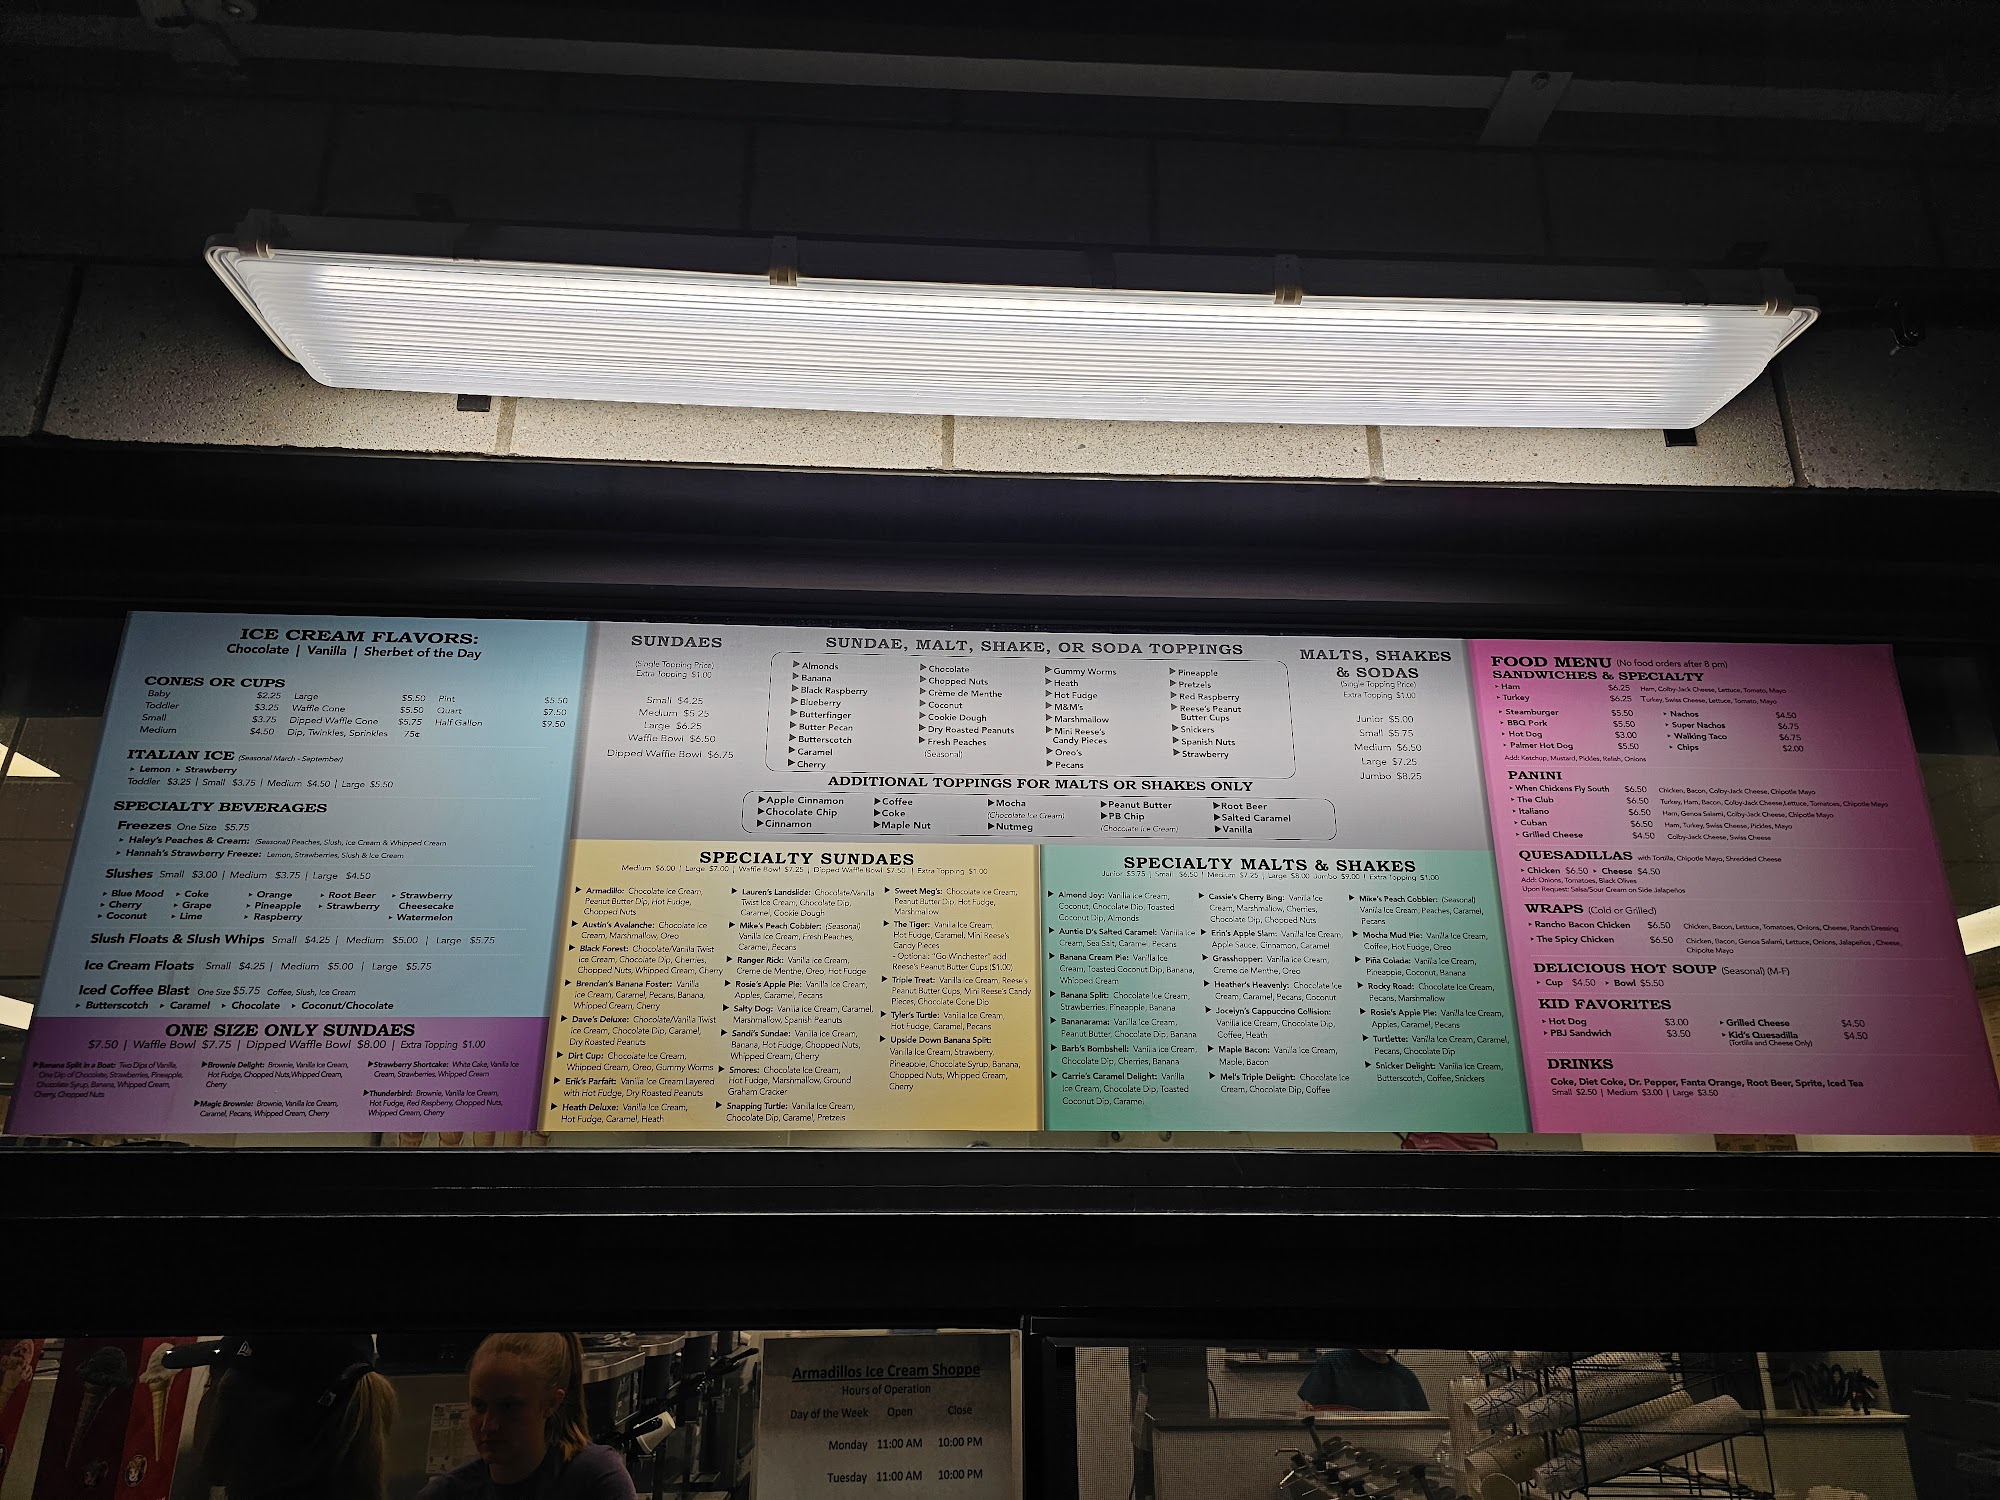 ICE CREAM FLAVORS:
Chocolate | Vanilla | Sherbet of the Day
CONES OR CUPS
Baby $2.25 Large $5.50 Pint $5.50
Toddler $3.25 Waffle Cone $5.50 Quart $7.50
Small $3.75 Dipped Waffle Cone $5.75 Half Gallon $9.50
Medium $4.50 Dip, Twinkles, Sprinkles 75¢
ITALIAN ICE (Seasonal March - September)
▸ Lemon ▸ Strawberry
Toddler $3.25 | Small $3.75 | Medium $4.50 | Large $5.50
SPECIALTY BEVERAGES
Freezes One Size $5.75
▸ Haley's Peaches & Cream: (Seasonal) Peaches, Slush, Ice Cream & Whipped Cream
▸ Hannah's Strawberry Freeze: Lemon, Strawberries, Slush & Ice Cream
Slushes Small $3.00 | Medium $3.75 | Large $4.50
▸ Blue Mood ▸ Coke ▸ Orange ▸ Root Beer ▸ Strawberry
▸ Cherry ▸ Grape ▸ Pineapple ▸ Strawberry Cheesecake
▸ Coconut ▸ Lime ▸ Raspberry ▸ Watermelon
Slush Floats & Slush Whips Small $4.25 | Medium $5.00 | Large $5.75
Ice Cream Floats Small $4.25 | Medium $5.00 | Large $5.75
Iced Coffee Blast One Size $5.75 Coffee, Slush, Ice Cream
▸ Butterscotch ▸ Caramel ▸ Chocolate ▸ Coconut/Chocolate
ONE SIZE ONLY SUNDAES
$7.50 | Waffle Bowl $7.75 | Dipped Waffle Bowl $8.00 | Extra Topping $1.00
▸Banana Split in a Boat: Two Dips of Vanilla,
One Dip of Chocolate, Strawberries, Pineapple,
Chocolate Syrup, Banana, Whipped Cream,
Cherry, Chopped Nuts
▸Brownie Delight: Brownie, Vanilla Ice Cream,
Hot Fudge, Chopped Nuts,Whipped Cream,
Cherry
▸Magic Brownie: Brownie, Vanilla Ice Cream,
Caramel, Pecans, Whipped Cream, Cherry
▸Strawberry Shortcake: White Cake, Vanilla Ice
Cream, Strawberries, Whipped Cream
▸Thunderbird: Brownie, Vanilla Ice Cream,
Hot Fudge, Red Raspberry, Chopped Nuts,
Whipped Cream, Cherry
SUNDAES
(Single Topping Price)
Extra Topping $1.00
Small $4.25
Medium $5.25
Large $6.25
Waffle Bowl $6.50
Dipped Waffle Bowl $6.75
SUNDAE, MALT, SHAKE, OR SODA TOPPINGS
▸Almonds
▸Banana
▸Black Raspberry
▸Blueberry
▸Butterfinger
▸Butter Pecan
▸Butterscotch
▸Caramel
▸Cherry
▸Chocolate
▸Chopped Nuts
▸Crème de Menthe
▸Coconut
▸Cookie Dough
▸Dry Roasted Peanuts
▸Fresh Peaches
(Seasonal)
▸Gummy Worms
▸Heath
▸Hot Fudge
▸M&M's
▸Marshmallow
▸Mini Reese's
Candy Pieces
▸Oreo's
▸Pecans
▸Pineapple
▸Pretzels
▸Red Raspberry
▸Reese's Peanut
Butter Cups
▸Snickers
▸Spanish Nuts
▸Strawberry
ADDITIONAL TOPPINGS FOR MALTS OR SHAKES ONLY
▸Apple Cinnamon
▸Chocolate Chip
▸Cinnamon
▸Coffee
▸Coke
▸Maple Nut
▸Mocha
(Chocolate Ice Cream)
▸Nutmeg
▸Peanut Butter
▸PB Chip
(Chocolate Ice Cream)
▸Root Beer
▸Salted Caramel
▸Vanilla
MALTS, SHAKES
& SODAS
(Single Topping Price)
Extra Topping $1.00
Junior $5.00
Small $5.75
Medium $6.50
Large $7.25
Jumbo $8.25
SPECIALTY SUNDAES
Medium $6.00 | Large $7.00 | Waffle Bowl $7.25 | Dipped Waffle Bowl $7.50 | Extra Topping $1.00
▸ Armadillo: Chocolate Ice Cream,
Peanut Butter Dip, Hot Fudge,
Chopped Nuts
▸ Austin's Avalanche: Chocolate Ice
Cream, Marshmallow, Oreo
▸ Black Forest: Chocolate/Vanilla Twist
Ice Cream, Chocolate Dip, Cherries,
Chopped Nuts, Whipped Cream, Cherry
▸ Brendan's Banana Foster: Vanilla
Ice Cream, Caramel, Pecans, Banana,
Whipped Cream, Cherry
▸ Dave's Deluxe: Chocolate/Vanilla Twist
Ice Cream, Chocolate Dip, Caramel,
Dry Roasted Peanuts
▸ Dirt Cup: Chocolate Ice Cream,
Whipped Cream, Oreo, Gummy Worms
▸ Erik's Parfait: Vanilla Ice Cream Layered
with Hot Fudge, Dry Roasted Peanuts
▸ Heath Deluxe: Vanilla Ice Cream,
Hot Fudge, Caramel, Heath
▸ Lauren's Landslide: Chocolate/Vanilla
Twist Ice Cream, Chocolate Dip,
Caramel, Cookie Dough
▸ Mike's Peach Cobbler: (Seasonal)
Vanilla Ice Cream, Fresh Peaches,
Caramel, Pecans
▸ Ranger Rick: Vanilla Ice Cream,
Creme de Menthe, Oreo, Hot Fudge
▸ Rosie's Apple Pie: Vanilla Ice Cream,
Apples, Caramel, Pecans
▸ Salty Dog: Vanilla Ice Cream, Caramel,
Marshmallow, Spanish Peanuts
▸ Sandi's Sundae: Vanilla Ice Cream,
Banana, Hot Fudge, Chopped Nuts,
Whipped Cream, Cherry
▸ Smores: Chocolate Ice Cream,
Hot Fudge, Marshmallow, Ground
Graham Cracker
▸ Snapping Turtle: Vanilla Ice Cream,
Chocolate Dip, Caramel, Pretzels
▸ Sweet Meg's: Chocolate Ice Cream,
Peanut Butter Dip, Hot Fudge,
Marshmallow
▸ The Tiger: Vanilla Ice Cream,
Hot Fudge, Caramel, Mini Reese's
Candy Pieces
- Optional: "Go Winchester" add
Reese's Peanut Butter Cups ($1.00)
▸ Triple Treat: Vanilla Ice Cream, Reese's
Peanut Butter Cups, Mini Reese's Candy
Pieces, Chocolate Cone Dip
▸ Tyler's Turtle: Vanilla Ice Cream,
Hot Fudge, Caramel, Pecans
▸ Upside Down Banana Split:
Vanilla Ice Cream, Strawberry,
Pineapple, Chocolate Syrup, Banana,
Chopped Nuts, Whipped Cream,
Cherry
SPECIALTY MALTS & SHAKES
Junior $5.75 | Small $6.50 | Medium $7.25 | Large $8.00 Jumbo $9.00 | Extra Topping $1.00
▸ Almond Joy: Vanilla Ice Cream,
Coconut, Chocolate Dip, Toasted
Coconut Dip, Almonds
▸ Auntie D's Salted Caramel: Vanilla Ice
Cream, Sea Salt, Caramel, Pecans
▸ Banana Cream Pie: Vanilla Ice
Cream, Toasted Coconut Dip, Banana,
Whipped Cream
▸ Banana Split: Chocolate Ice Cream,
Strawberries, Pineapple, Banana
▸ Bananarama: Vanilla Ice Cream,
Peanut Butter, Chocolate Dip, Banana
▸ Barb's Bombshell: Vanilla Ice Cream,
Chocolate Dip, Cherries, Banana
▸ Carrie's Caramel Delight: Vanilla
Ice Cream, Chocolate Dip, Toasted
Coconut Dip, Caramel
▸ Cassie's Cherry Bing: Vanilla Ice
Cream, Marshmallow, Cherries,
Chocolate Dip, Chopped Nuts
▸ Erin's Apple Slam: Vanilla Ice Cream,
Apple Sauce, Cinnamon, Caramel
▸ Grasshopper: Vanilla Ice Cream,
Creme de Menthe, Oreo
▸ Heather's Heavenly: Chocolate Ice
Cream, Caramel, Pecans, Coconut
▸ Jocelyn's Cappuccino Collision:
Vanilla Ice Cream, Chocolate Dip,
Coffee, Heath
▸ Maple Bacon: Vanilla Ice Cream,
Maple, Bacon
▸ Mel's Triple Delight: Chocolate Ice
Cream, Chocolate Dip, Coffee
▸ Mike's Peach Cobbler: (Seasonal)
Vanilla Ice Cream, Peaches, Caramel,
Pecans
▸ Mocha Mud Pie: Vanilla Ice Cream,
Coffee, Hot Fudge, Oreo
▸ Piña Colada: Vanilla Ice Cream,
Pineapple, Coconut, Banana
▸ Rocky Road: Chocolate Ice Cream,
Pecans, Marshmallow
▸ Rosie's Apple Pie: Vanilla Ice Cream,
Apples, Caramel, Pecans
▸ Turtlette: Vanilla Ice Cream, Caramel,
Pecans, Chocolate Dip
▸ Snicker Delight: Vanilla Ice Cream,
Butterscotch, Coffee, Snickers
FOOD MENU (No food orders after 8 pm)
SANDWICHES & SPECIALTY
▸ Ham $6.25 Ham, Colby-Jack Cheese, Lettuce, Tomato, Mayo
▸ Turkey $6.25 Turkey, Swiss Cheese, Lettuce, Tomato, Mayo
▸ Steamburger $5.50 ▸ Nachos $4.50
▸ BBQ Pork $5.50 ▸ Super Nachos $6.75
▸ Hot Dog $3.00 ▸ Walking Taco $6.75
▸ Palmer Hot Dog $5.50 ▸ Chips $2.00
Add: Ketchup, Mustard, Pickles, Relish, Onions
PANINI
▸ When Chickens Fly South $6.50 Chicken, Bacon, Colby-Jack Cheese, Chipotle Mayo
▸ The Club $6.50 Turkey, Ham, Bacon, Colby-Jack Cheese,Lettuce, Tomatoes, Chipotle Mayo
▸ Italiano $6.50 Ham, Genoa Salami, Colby-Jack Cheese, Chipotle Mayo
▸ Cuban $6.50 Ham, Turkey, Swiss Cheese, Pickles, Mayo
▸ Grilled Cheese $4.50 Colby-Jack Cheese, Swiss Cheese
QUESADILLAS with Tortilla, Chipotle Mayo, Shredded Cheese
▸ Chicken $6.50 ▸ Cheese $4.50
Add: Onions, Tomatoes, Black Olives
Upon Request: Salsa/Sour Cream on Side Jalapeños
WRAPS (Cold or Grilled)
▸ Rancho Bacon Chicken $6.50 Chicken, Bacon, Lettuce, Tomatoes, Onions, Cheese, Ranch Dressing
▸ The Spicy Chicken $6.50 Chicken, Bacon, Genoa Salami, Lettuce, Onions, Jalapeños , Cheese,
Chipotle Mayo
DELICIOUS HOT SOUP (Seasonal) (M-F)
▸ Cup $4.50 ▸ Bowl $5.50
KID FAVORITES
▸ Hot Dog $3.00 ▸ Grilled Cheese $4.50
▸ PBJ Sandwich $3.50 ▸ Kid's Quesadilla $4.50
(Tortilla and Cheese Only)
DRINKS
Coke, Diet Coke, Dr. Pepper, Fanta Orange, Root Beer, Sprite, Iced Tea
Small $2.50 | Medium $3.00 | Large $3.50
Armadillos Ice Cream Shoppe
Hours of Operation
Day of the Week Open Close
Monday 11:00 AM 10:00 PM
Tuesday 11:00 AM 10:00 PM